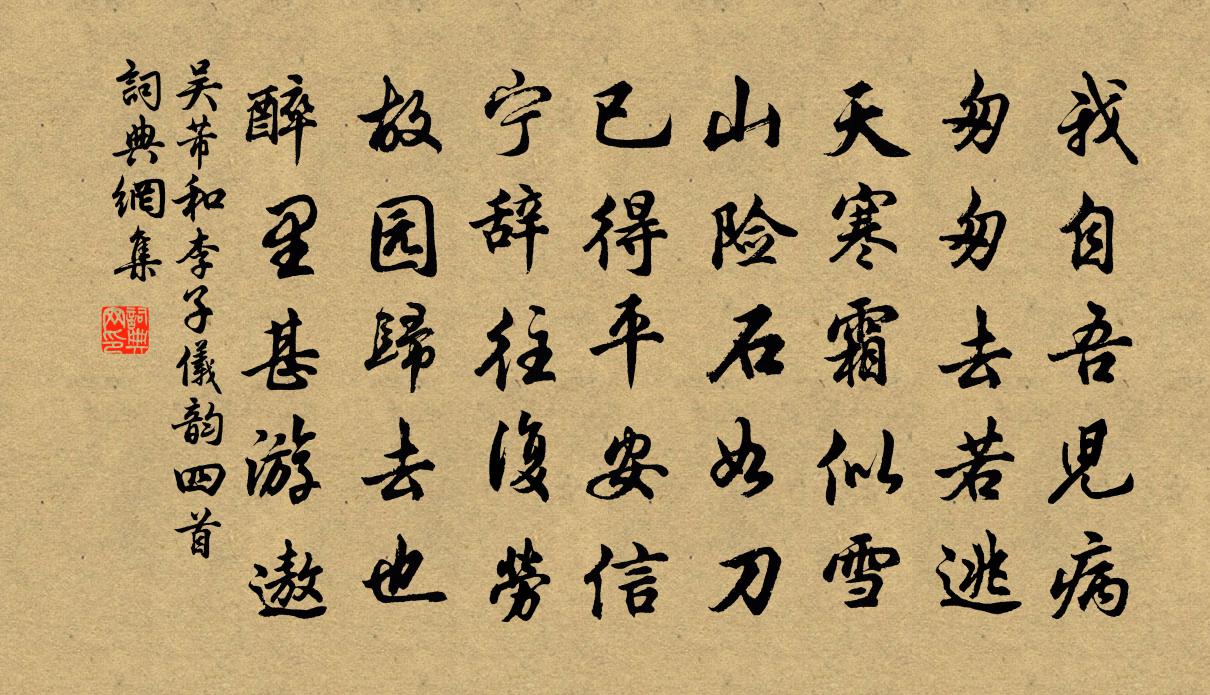 我自吾児病
匆匆去若逃
天寒霜似雪
山险石如刀
已得平安信
宁辞往復勞
故园歸去也
醉里甚游遨
吴芾和李子儀韵四首
詞典網集
詞典网印